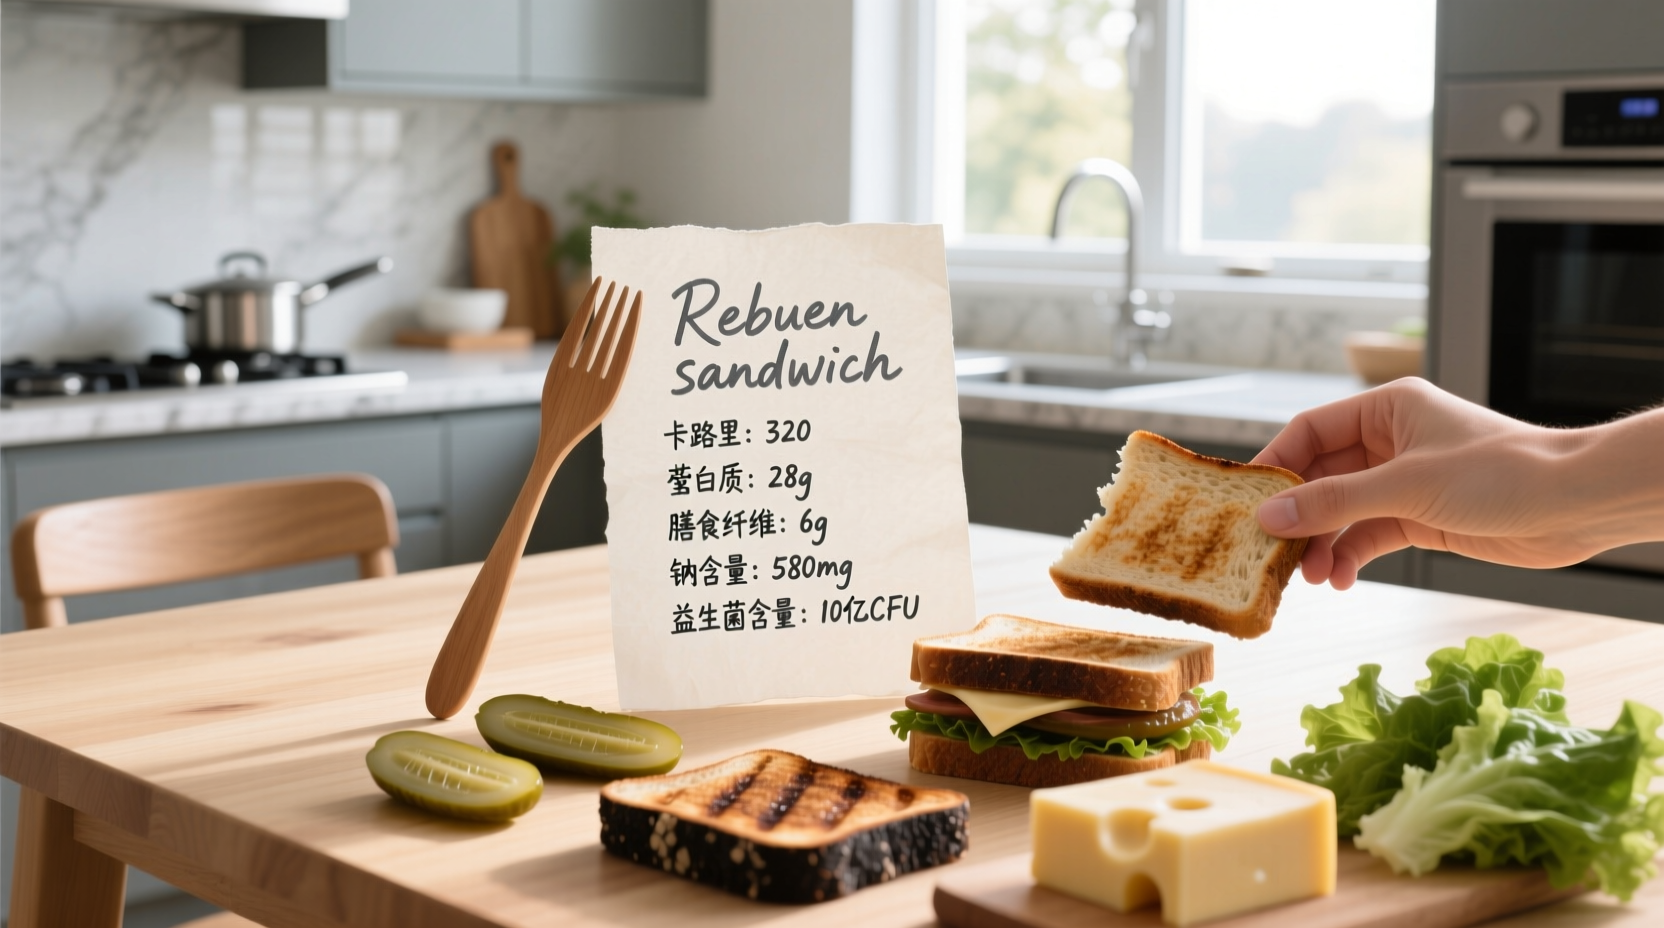 Rebuen
sandwich
卡路里: 320
蛋白质: 28g
膳食纤维: 6g
钠含量: 580mg
益生菌含量: 10亿CFU